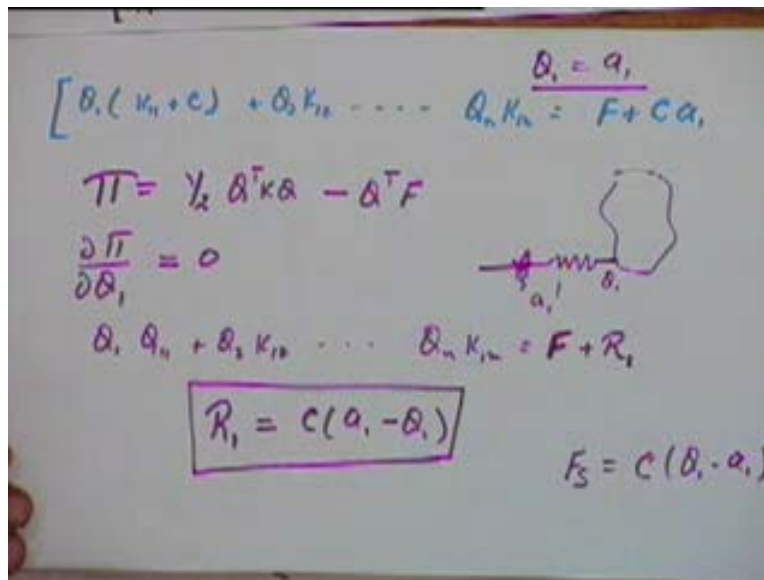 Q₁ = a₁
[Q₁(K₁₁ + C) + Q₂K₁₂ ---- QₙK₁ₙ = F + Ca₁
π = 1/2 QᵀKQ - QᵀF
∂π/∂Q₁ = 0
a₁ Q₁
Q₁ Q₁₁ + Q₂ K₁₂ ... QₙK₁ₙ = F + R₁
R₁ = C(a₁ - Q₁)
Fs = C(Q₁ - a₁)